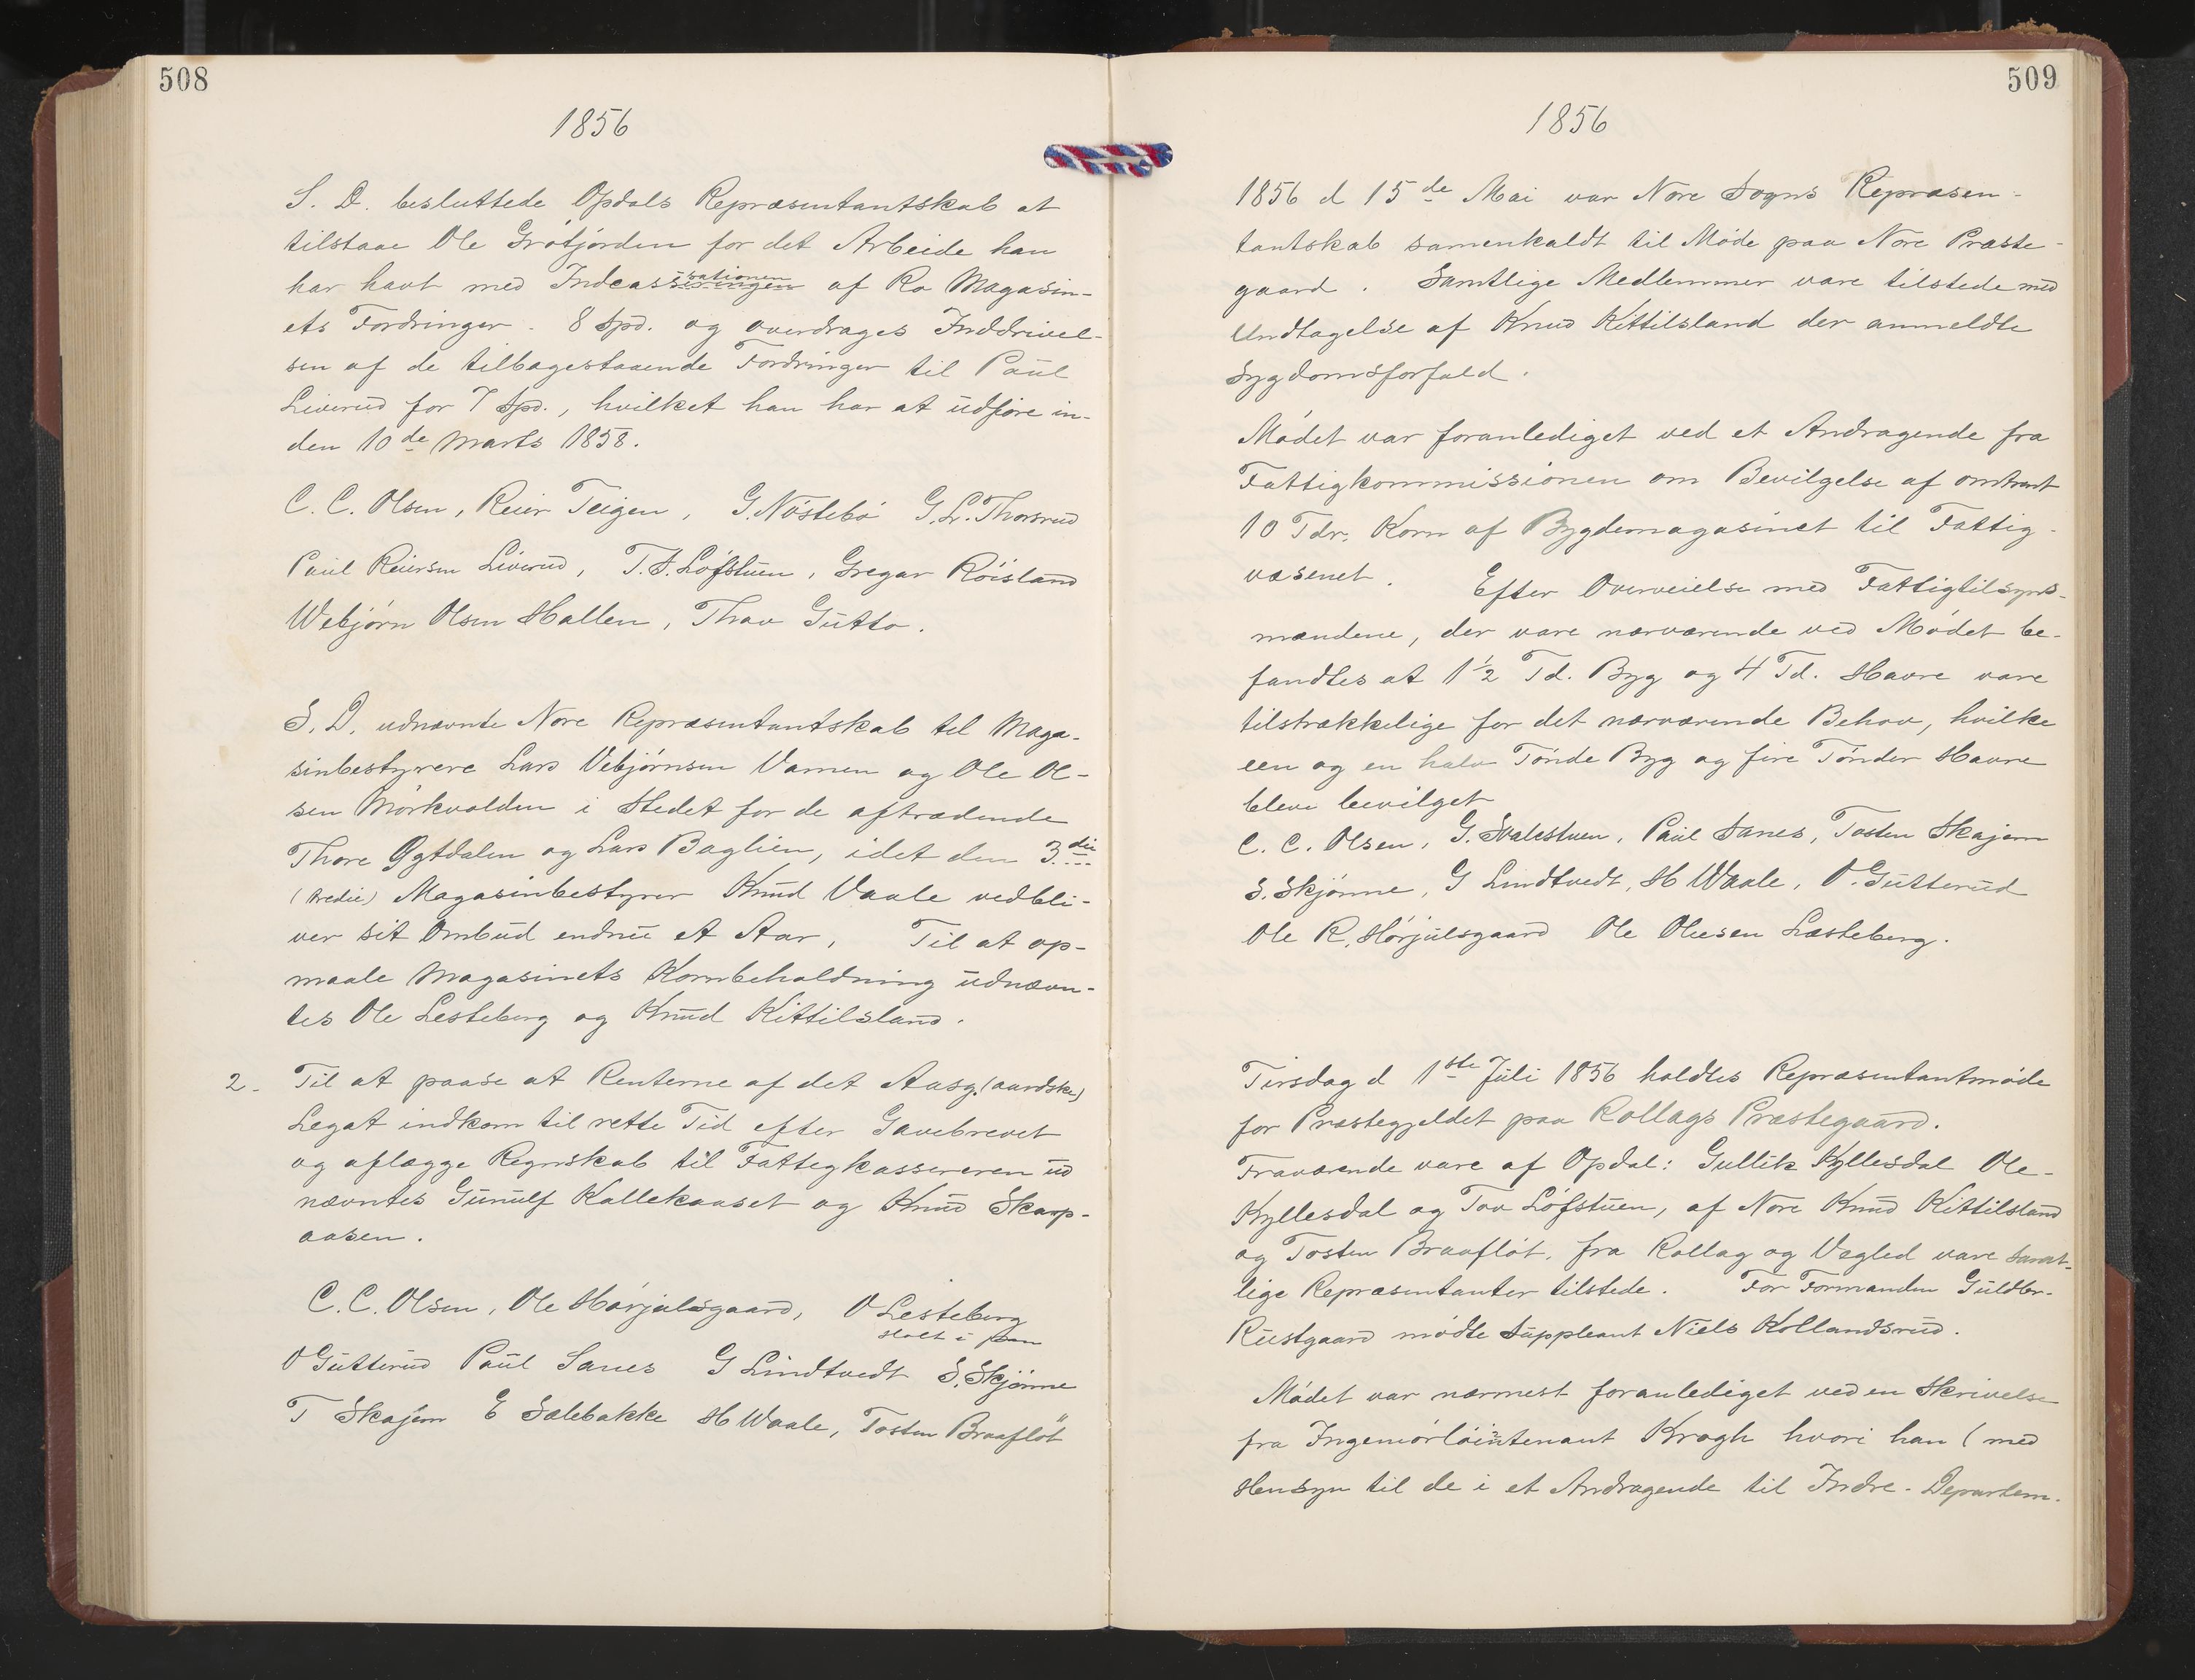 508
1856
S. D. besluttede Opdals Repræsentantskab at
tilstaae Ole Grótjorden for det Arbeide han
har havt med Indcasseringen sationen af Ro Magasin-
ets Fordringer. 8 Spd. og overdrages Inddrivel-
sen af de tilbagestaaende Fordringer til Paul
Liverud for 7 Spd., hvilket han har at udføre in-
den 10de Marts 1858.
C. C. Olsen, Reier Teigen, G. Nöstebö G. L. Thorsrud
Paul Reiersen Liverud, T. T. Lófstuen, Gregar Róisland
Webjörn Olsen Hallen, Thov Gutto.
S. D. udnævnte Nore Repræsentantskab til Maga-
sinbestyrere Lars Vebjörnsen Vamen og Ole Ol-
sen Mórkvolden i Stedet for de aftrædende
Thore Øgtdalen og Lars Baglien, idet den 3die
(tredie) Magasinbestyrer Knud Vaale vedbli-
ver sit Ombud endnu et Aar. Til at op-
maale Magasinets Kornbeholdning udnævn-
tes Ole Lesteberg og Knud Kittilsland.
2. Til at paase at Renterne af det Aasg. (aardske)
Legat indkom til rette Tid efter Gavebrevet
og aflægge Regnskab til Fattigkassereren ud
nævntes Gunulf Kallekaaset og Knud Skarp-
aasen.
C. C. Olsen, Ole Hórjulsgaard, O Lesteberg
Holt i pen
O Gutterud Paul Sanes G Lindtvedt S. Skjónne
T Skajem E Sælebakke H Waale, Tosten Braaflöt
509
1856
1856 d 15de Mai var Nore Sogns Repræsen-
tantskab samenkaldt til Móde paa Nore Præste-
gaard. Samtlige Medlemmer vare tilstede med
Undtagelse af Knud Kittilsland der anmeldte
Sygdomsforfald.
Módet var foranlediget ved et Andragende fra
Fattigkommissionen om Bevilgelse af omtrent
10 Tdr. Korn af Bygdemagasinet til Fattig-
væsenet. Efter Overveielse med Fattigtilsyns-
mændene, der vare nærværende ved Módet be-
fandtes at 1½ Td. Byg og 4 Td. Havre vare
tilstrækkelige for det nærværende Behov, hvilke
een og en halv Tónde Byg og fire Tónder Havre
bleve bevilget
C. C. Olsen, G. Svalestuen, Paul Sanes, Tosten Skajem
S. Skjónne, G Lindtvedt, H Waale, O. Gutterud
Ole R. Hórjulsgaard Ole Olesen Læsteberg.
Tirsdag d 1ste Juli 1856 holdtes Repræsentantmóde
for Præstegjeldet paa Rollags Præstegaard.
Fraværende vare af Opdal: Gullik Kyllesdal Ole-
Kyllesdal og Tov Lófstuen, af Nore Knud Kittilsland
og Tosten Braaflót. fra Rollag og Vegled vare samt-
lige Repræsentanter tilstede. For Formanden Guldbr.
Rustgaard mödte Suppleant Niels Kollandsrud.
Módet var nærmest foranlediget ved en Skrivelse
fra Ingeniórlóintenant Krogh hvori han (med
Hensyn til de i et Andragende til Indre-Departem.